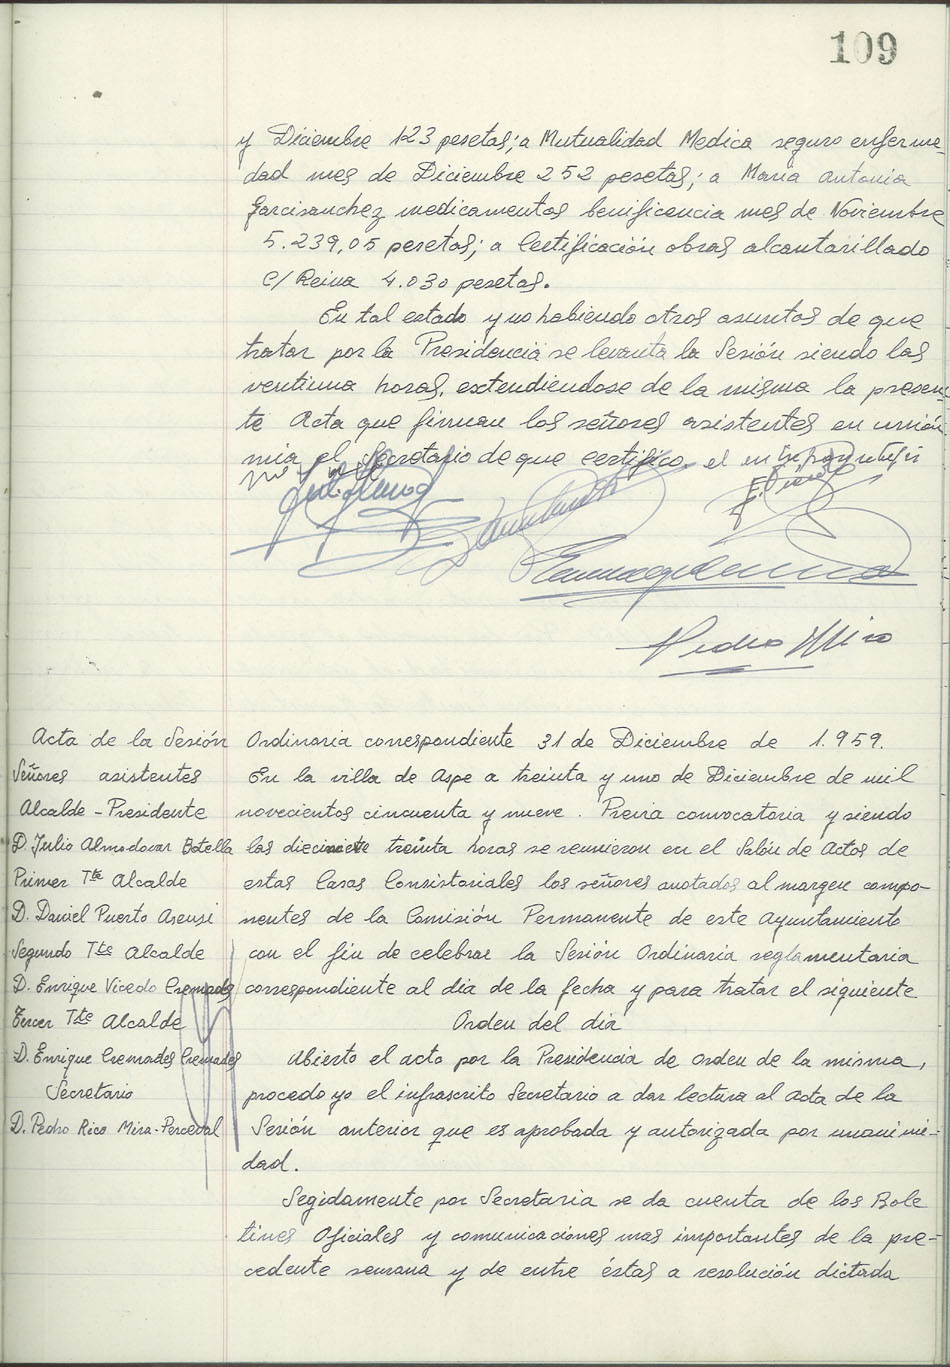 109
y Diciembre 123 pesetas; a Mutualidad Medica seguro enferme-
dad mes de Diciembre 252 pesetas; a Maria Antonia
Garcisanchez medicamentos benificencia mes de Noviembre
5.239,05 pesetas; a Certificación obras alcantarillado
C/ Reina 4.030 pesetas.
En tal estado y no habiendo otros asuntos de que
tratar por la Presidencia se levanta la Sesión siendo las
ventiuna horas, extendiendose de la misma la presen-
te Acta que firman los señores asistentes en unión
mia el Secretario de que certifico,
Pedro Mira
Acta de la Sesión Ordinaria correspondiente 31 de Diciembre de 1.959.
Señores asistentes
Alcalde - Presidente
D. Julio Almodovar Botella
Primer Tte Alcalde
D. Daniel Puerto Asensi
Segundo Tte Alcalde
D. Enrique Vicedo Cremades
Tercer Tte Alcalde
D. Enrique Cremades Cremades
Secretario
D. Pedro Rico Mira-Perceval
En la villa de Aspe a treinta y uno de Diciembre de mil
novecientos cincuenta y nueve. Previa convocatoria y siendo
las treinta horas se reunieron en el Salón de Actos de
estas Casas Consistoriales los señores anotados al margen compo-
nentes de la Comisión Permanente de este Ayuntamiento
con el fin de celebrar la Sesión Ordinaria reglamentaria
correspondiente al dia de la fecha y para tratar el siguiente
Orden del dia
Abierto el acto por la Presidencia de orden de la misma,
procedo yo el infrascrito Secretario a dar lectura al acta de la
Sesión anterior que es aprobada y autorizada por unanimi-
dad.
Segidamente por Secretaria se da cuenta de los Bole
tines Oficiales y comunicaciones mas importantes de la pre-
cedente semana y de entre éstas a resolución dictada